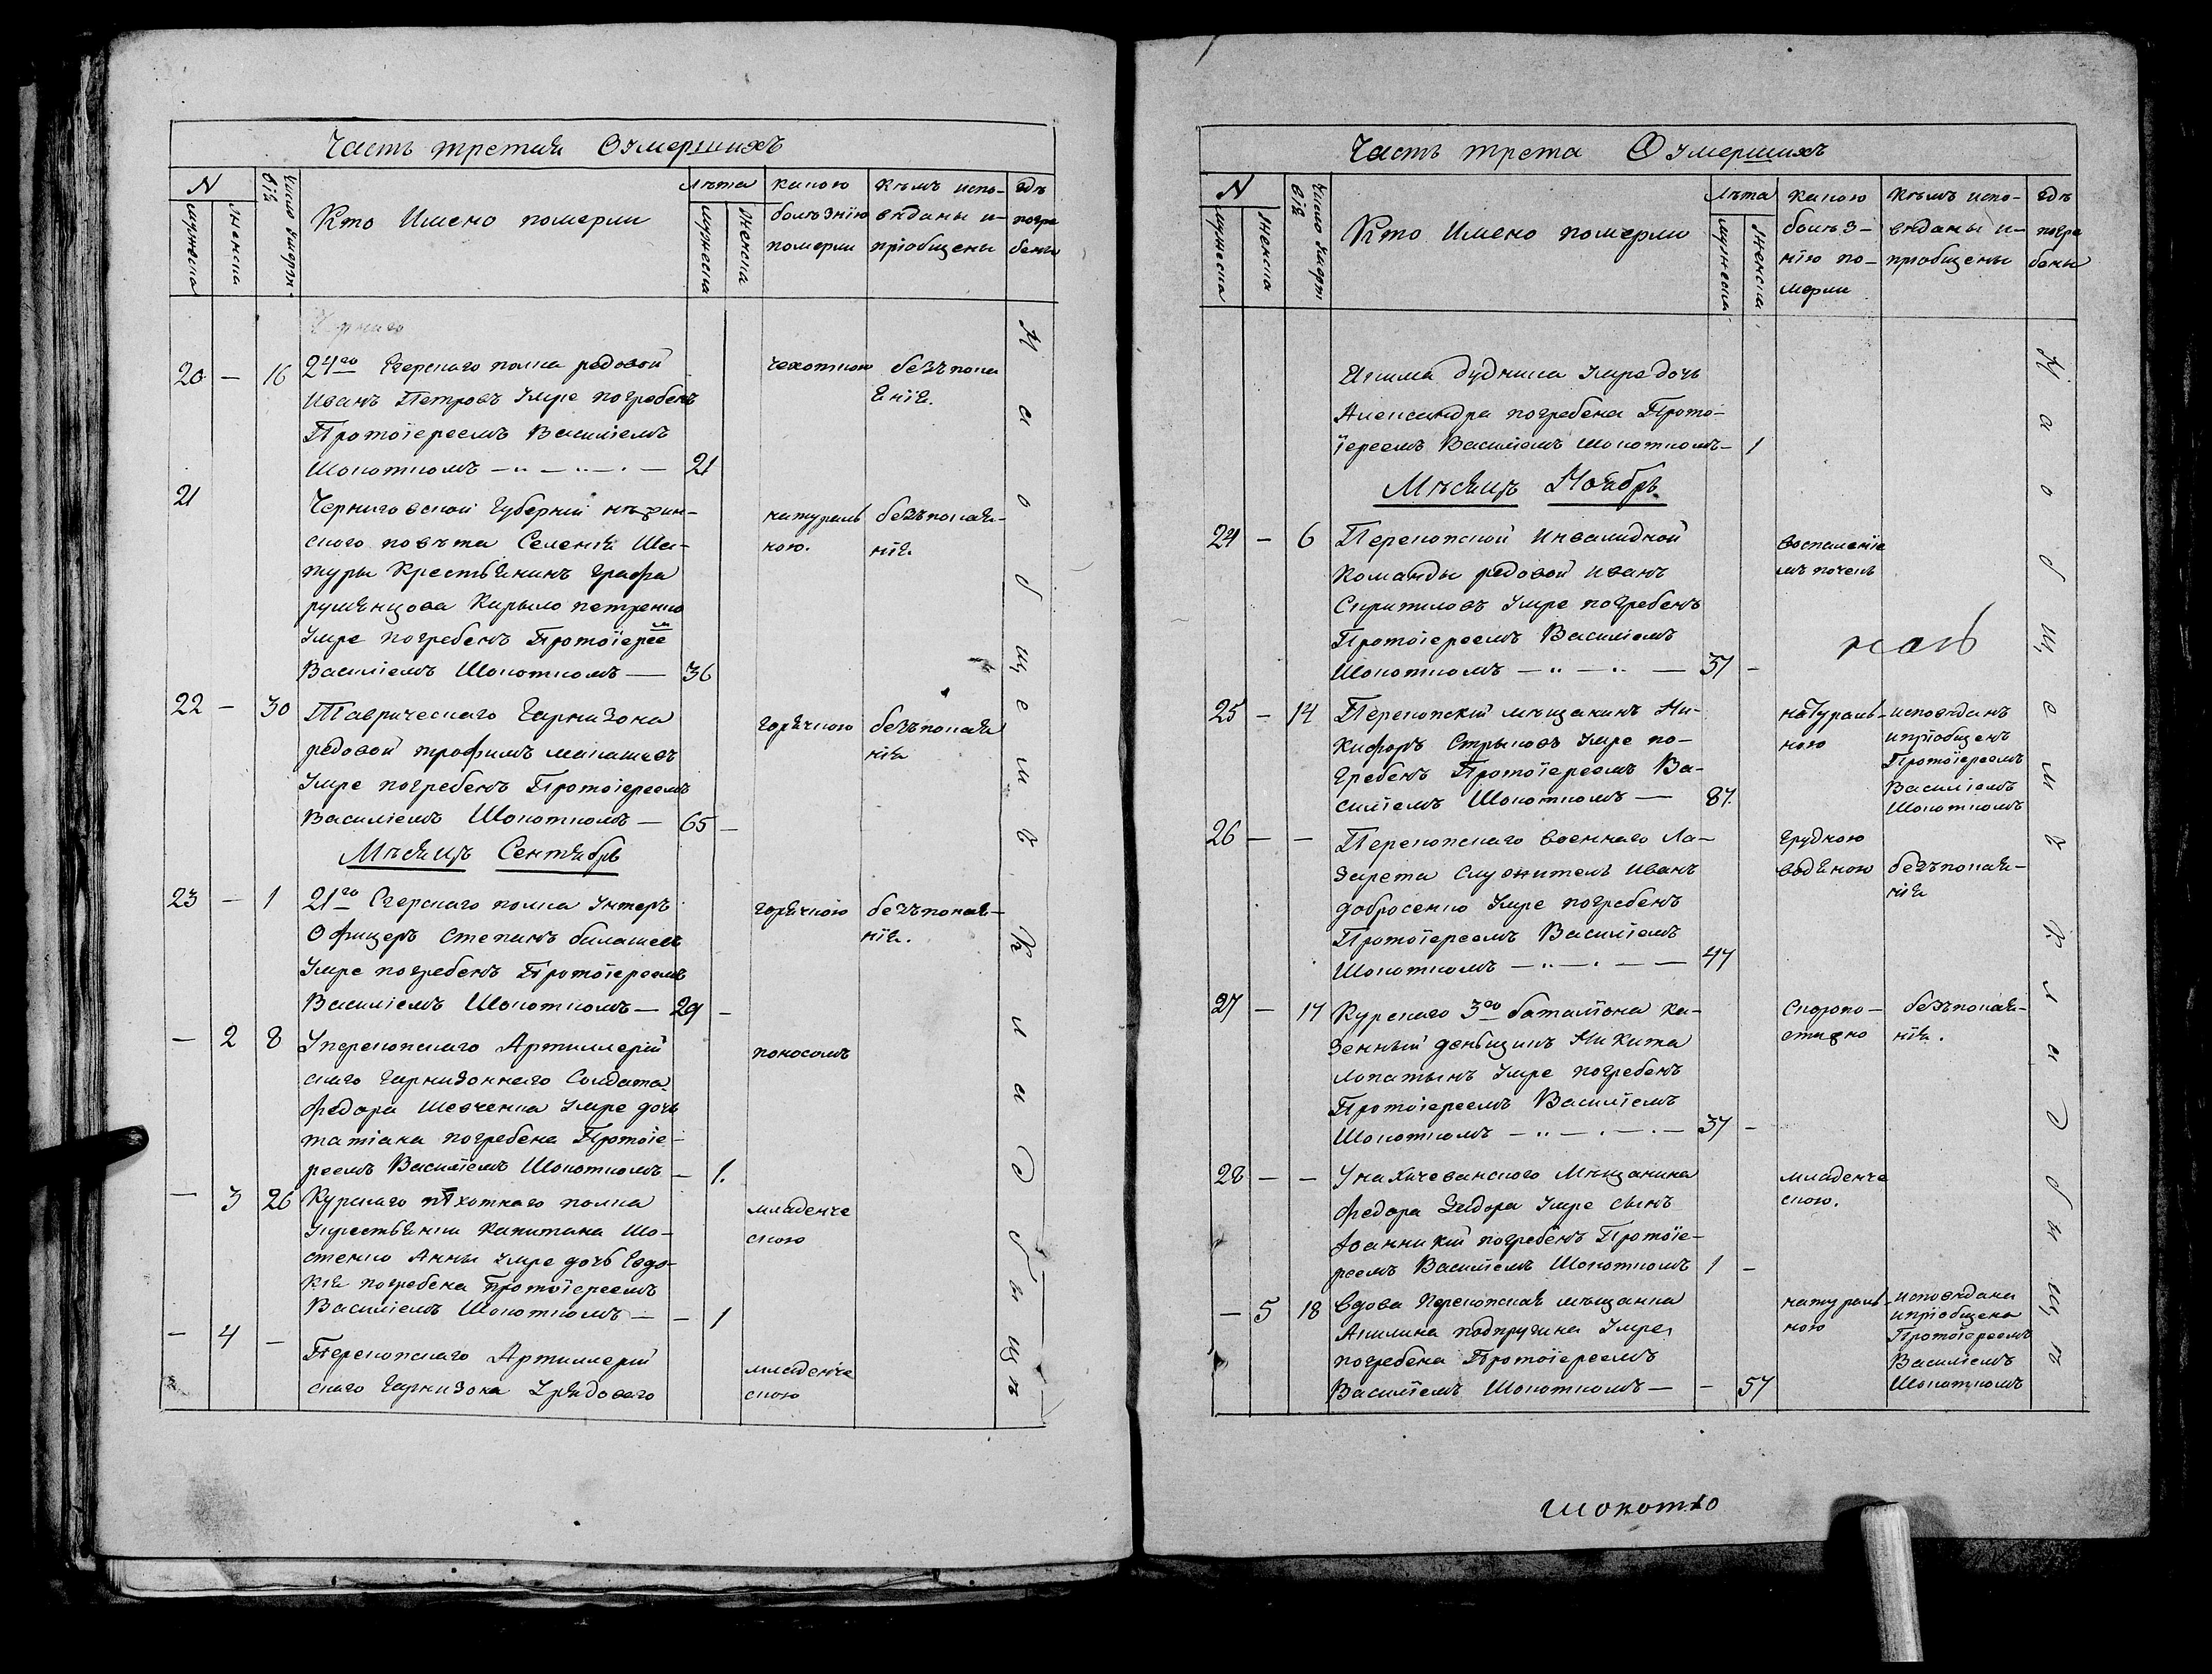 Часть третия О умершихъ
N
мужеска
женска
Число умерт-
віѣ
Кто Имено померли
Лѣта
мужеска
женска
какою
болѣзнію
померли
Кѣмъ испо-
вѣданы и
пріобщены
гдѣ
погре
бены
20 — 16 24го Егерскаго полка редовой
Иванъ Петровъ Умре погребенъ
Протоіереемъ Василіемъ
Шокоткомъ — 21
чехоткою
безъ пока
ѣнія.
21
Черниговской Губерніи
ского повѣта Селенія Ша-
туры Крестьянинъ графа
румянцова Кирыло петренко
Умре погребенъ Протоіерее
м
Василіемъ Шокоткомъ — 36
натураль
ною.
безъ покая-
нія
22 — 30 Таврическаго Гарнизона
редовой трофимъ малашевъ
Умре погребенъ Протоіереемъ
Василіемъ Шокоткомъ — 65 —
горячкою
безъ покая
нія
Мѣсяцъ Сентябрь
23 — 1 21го Егерскаго полка Унтеръ
Офицеръ Степанъ балашевъ
Умре погребенъ Протоіереемъ
Василіемъ Шокоткомъ — 29 —
горячкою
безъ покая-
нія.
— 2 8 Уперекопскаго Артиллерій
скаго гарнизоннаго Солдата
Федора Шевченка Умре дочь
татіана погребена Протоіе-
реемъ Василіемъ Шокоткомъ — 1.
поносомъ
— 3 26 Курскаго пѣхотнаго полка
Укрестьянки Капитана Шо-
стенко Анны Умре дочь Евдо-
кія погребена Протоіереемъ
Василіемъ Шокоткомъ — — 1
младенче
скою
— 4 — Перекопскаго Артиллерій
скаго Гарнизона Урядоваго
младенче
скою
На общемъ кладбищѣ
Часть трета О умершихъ
N
мужеска
женска
Число
віѣ
Кто Имено померли
Лѣта
мужеска
женска
какою
болѣз-
нію по-
мерли
Кѣмъ испо-
вѣданы и
пріобщены
гдѣ
погре
бены
Якима дудника Умре дочь
Александра погребена Прото-
іереемъ Василіемъ Шокоткомъ — 1
Мѣсяцъ Ноябрь
24 — 6 Перекопской Инвалидной
Команды редовой Иванъ
Умре погребенъ
Протоіереемъ Василіемъ
Шокоткомъ — 37 —
воспаленіе
мъ почекъ
25 — 14 Перекопскій мѣщанинъ Ни-
кифоръ Стрыковъ Умре по-
гребенъ Протоіереемъ Ва-
силіемъ Шокоткомъ — 87.
натураль-
ною
исповѣданъ
ипріобщенъ
Протоіереемъ
Василіемъ
Шокоткомъ
26 — — Перекопскаго военнаго Ла-
зарета Служитель Иванъ
добросенко Умре погребенъ
Протоіереемъ Василіемъ
Шокоткомъ — 47
грудною
водяною
безъ покая-
нія
27 — 17 Курскаго 3го баталіона ка-
зенный деньщикъ Никита
лопатынъ Умре погребенъ
Протоіереемъ Василіемъ
Шокоткомъ — 37 —
Скоропо-
стижно
безъ покая-
нія.
28 — — Унахичеванскаго Мѣщанина
Федора Умре сынъ
Іоанникій погребенъ Протоіе-
реемъ Василіемъ Шокоткомъ 1 —
младенче
скою.
— 5 18 Вдова Перекопская мѣщанка
Акилина подпругина Умре
погребена Протоіереемъ
Василіемъ Шокоткомъ — — 57
натураль-
ною
исповѣдана
ипріобщена
Протоіереемъ
Василіемъ
Шокоткомъ
На общемъ кладбищѣ
Шокотко